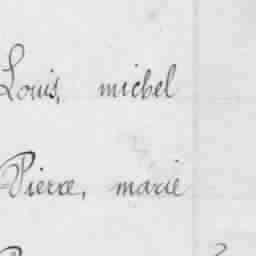 Louis, michel
Pierre, marie